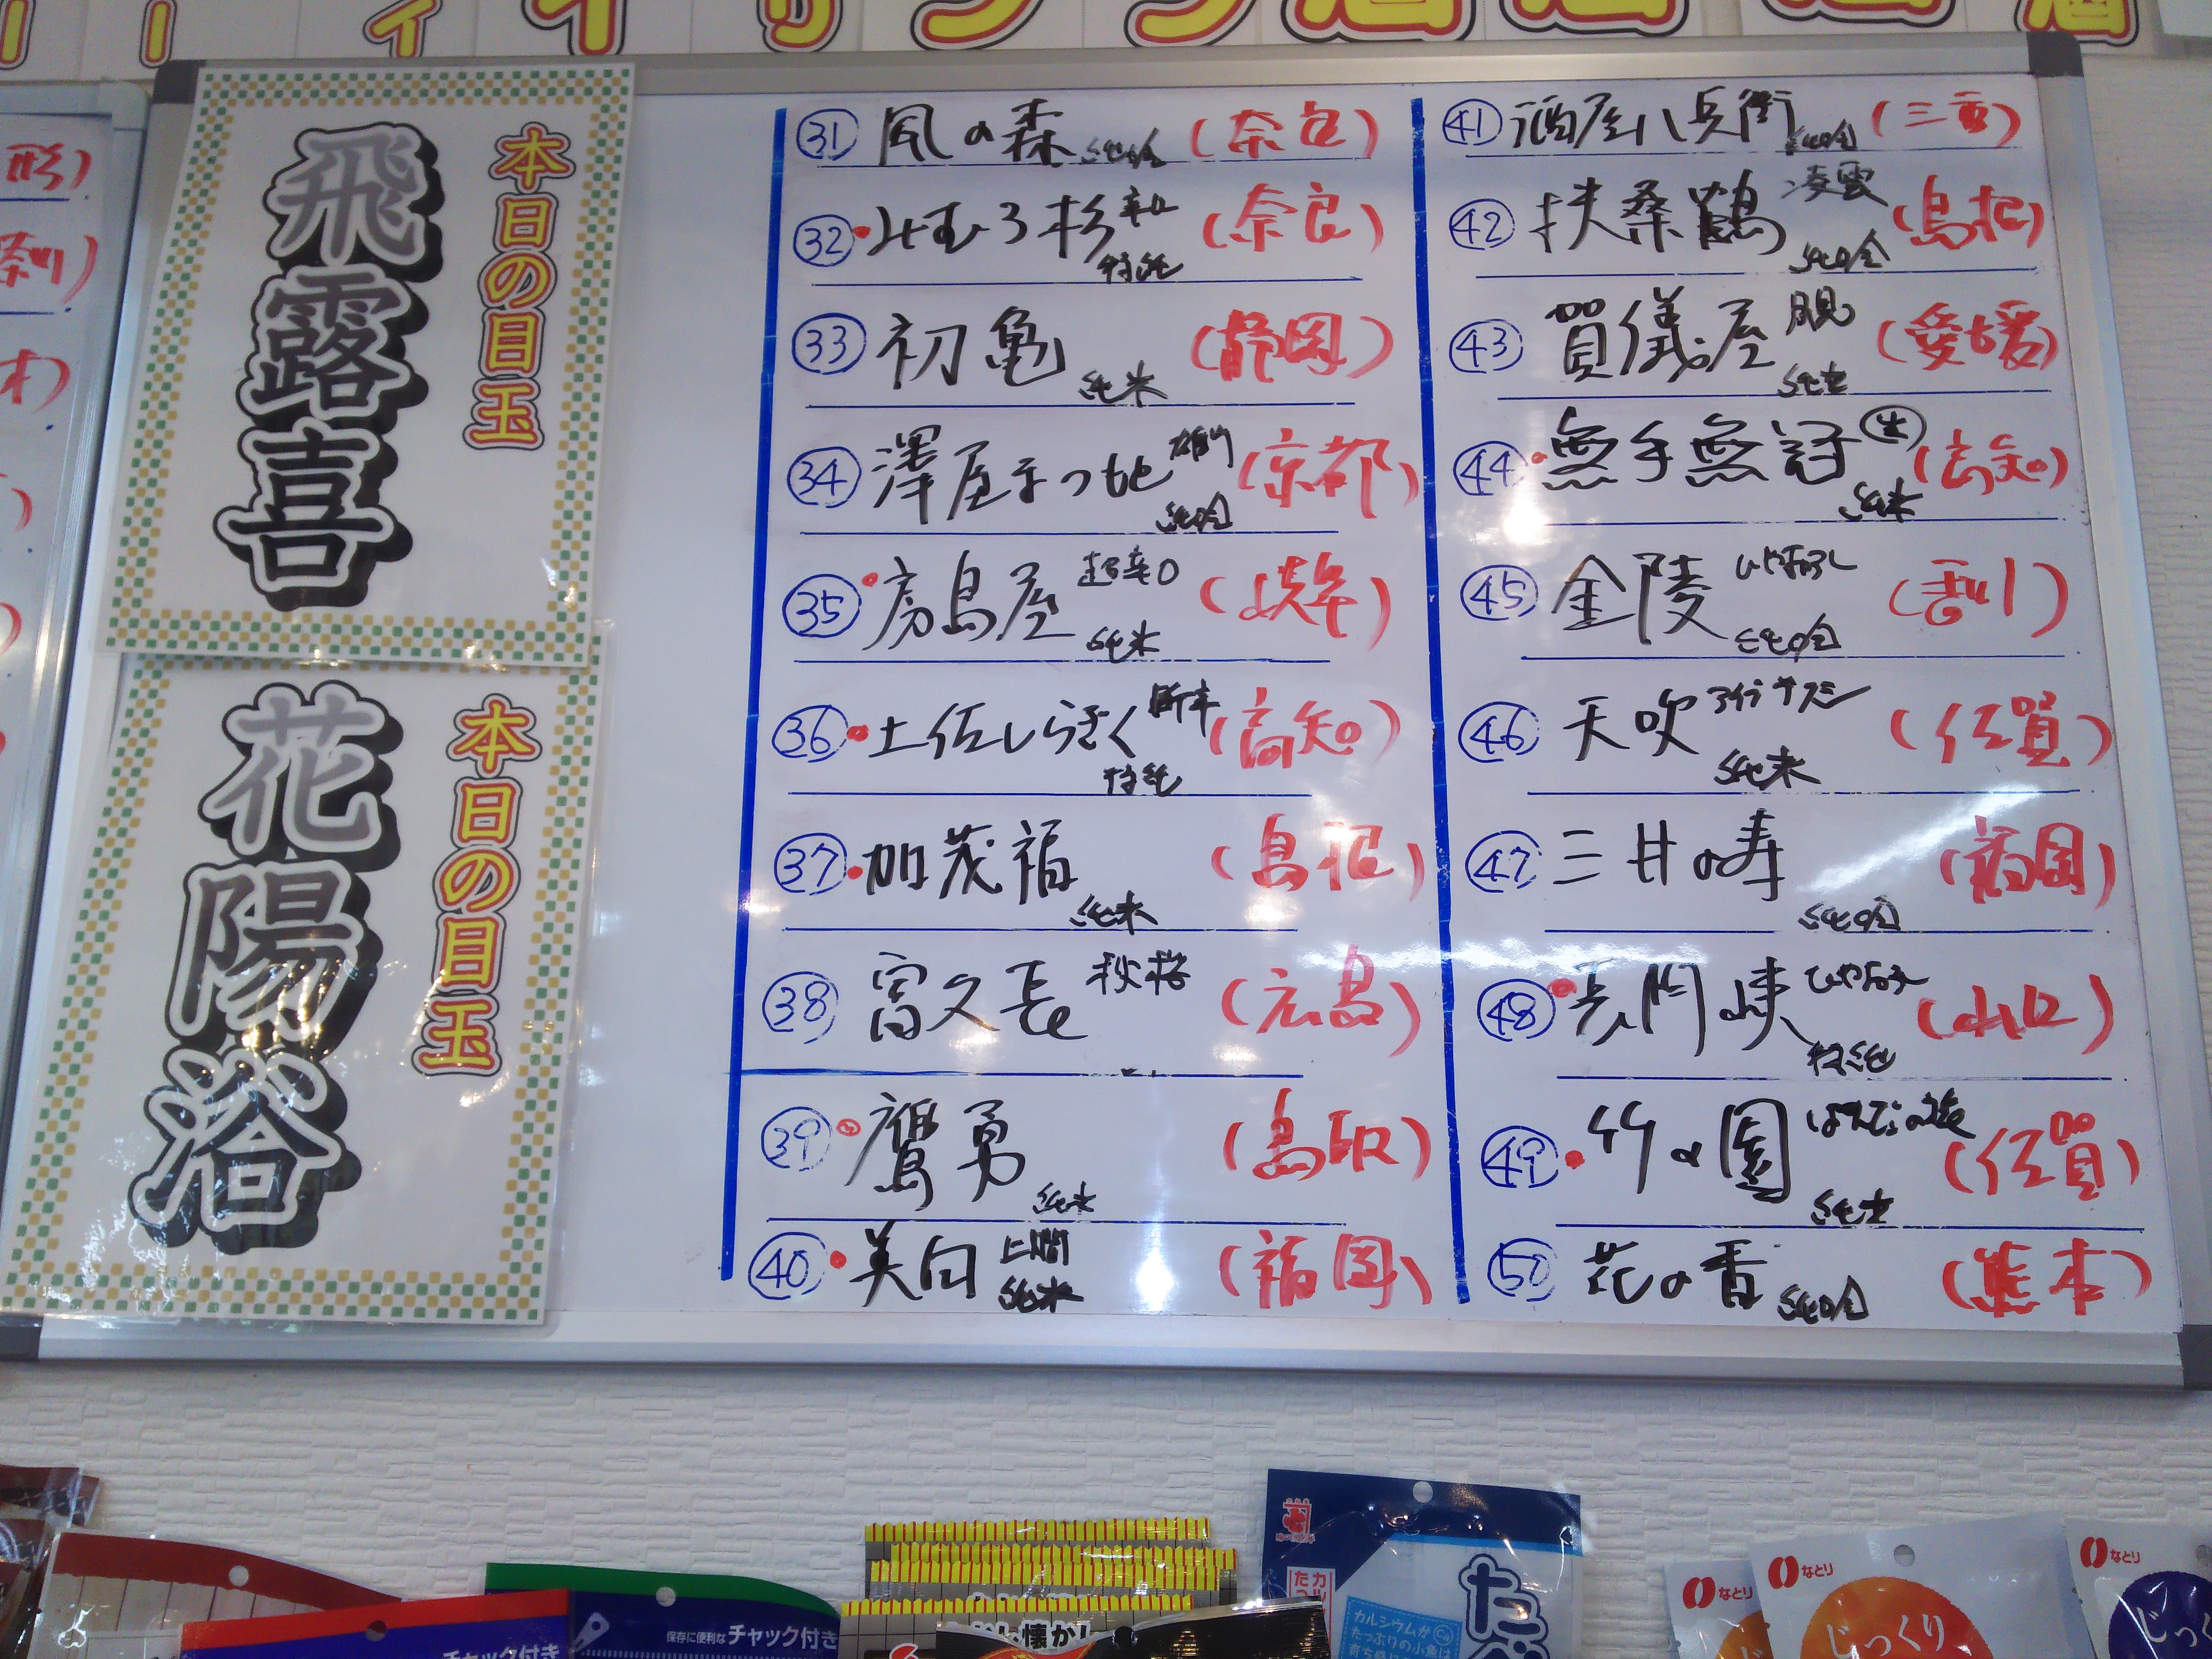 本日の目玉
飛露喜
本日の目玉
花陽浴
㉛ 風の森 純吟 (奈良)
㉜ みむろ杉 辛口 特純 (奈良)
㉝ 初亀 純米 (静岡)
㉞ 澤屋まつもと 純吟 (京都)
㉟ 房島屋 超辛口 純米 (岐阜)
㊱ 土佐しらぎく 特純 (高知)
㊲ 加茂福 純米 (島根)
㊳ 富久長 秋桜 (広島)
㊴ 鷹勇 純米 (鳥取)
㊵ 美田 純米 (福岡)
㊶ 酒屋八兵衛 純吟 (三重)
㊷ 扶桑鶴 凌雲 純吟 (島根)
㊸ 賀儀屋 純米 (愛媛)
㊹ 無手無冠 生 純米 (高知)
㊺ 金陵 ひやおろし 純吟 (香川)
㊻ 天吹 純米 (佐賀)
㊼ 三井の寿 純吟 (福岡)
㊽ 長門峡 ひやおろし 特純 (山口)
㊾ 竹の園 純米 (佐賀)
㊿ 花の香 純吟 (熊本)
保存に便利なチャック付き
チャック付き
カルシウムが
たっぷりの小魚は
なとり
なとり
なとり
じっくり